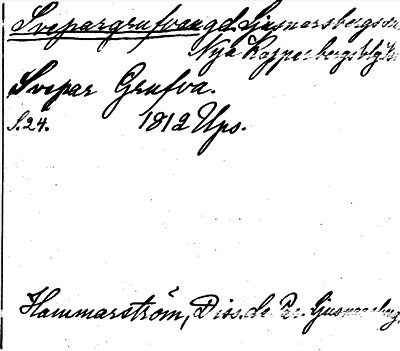 Svepargrufvan gd. Ljusnarsbergs sn.
Nya Kopparbergs blg Ör.
Svepar Grufva.
S. 24. 1812 Ups.
Hammarström, Diss. de Par. Ljusnarsberg.